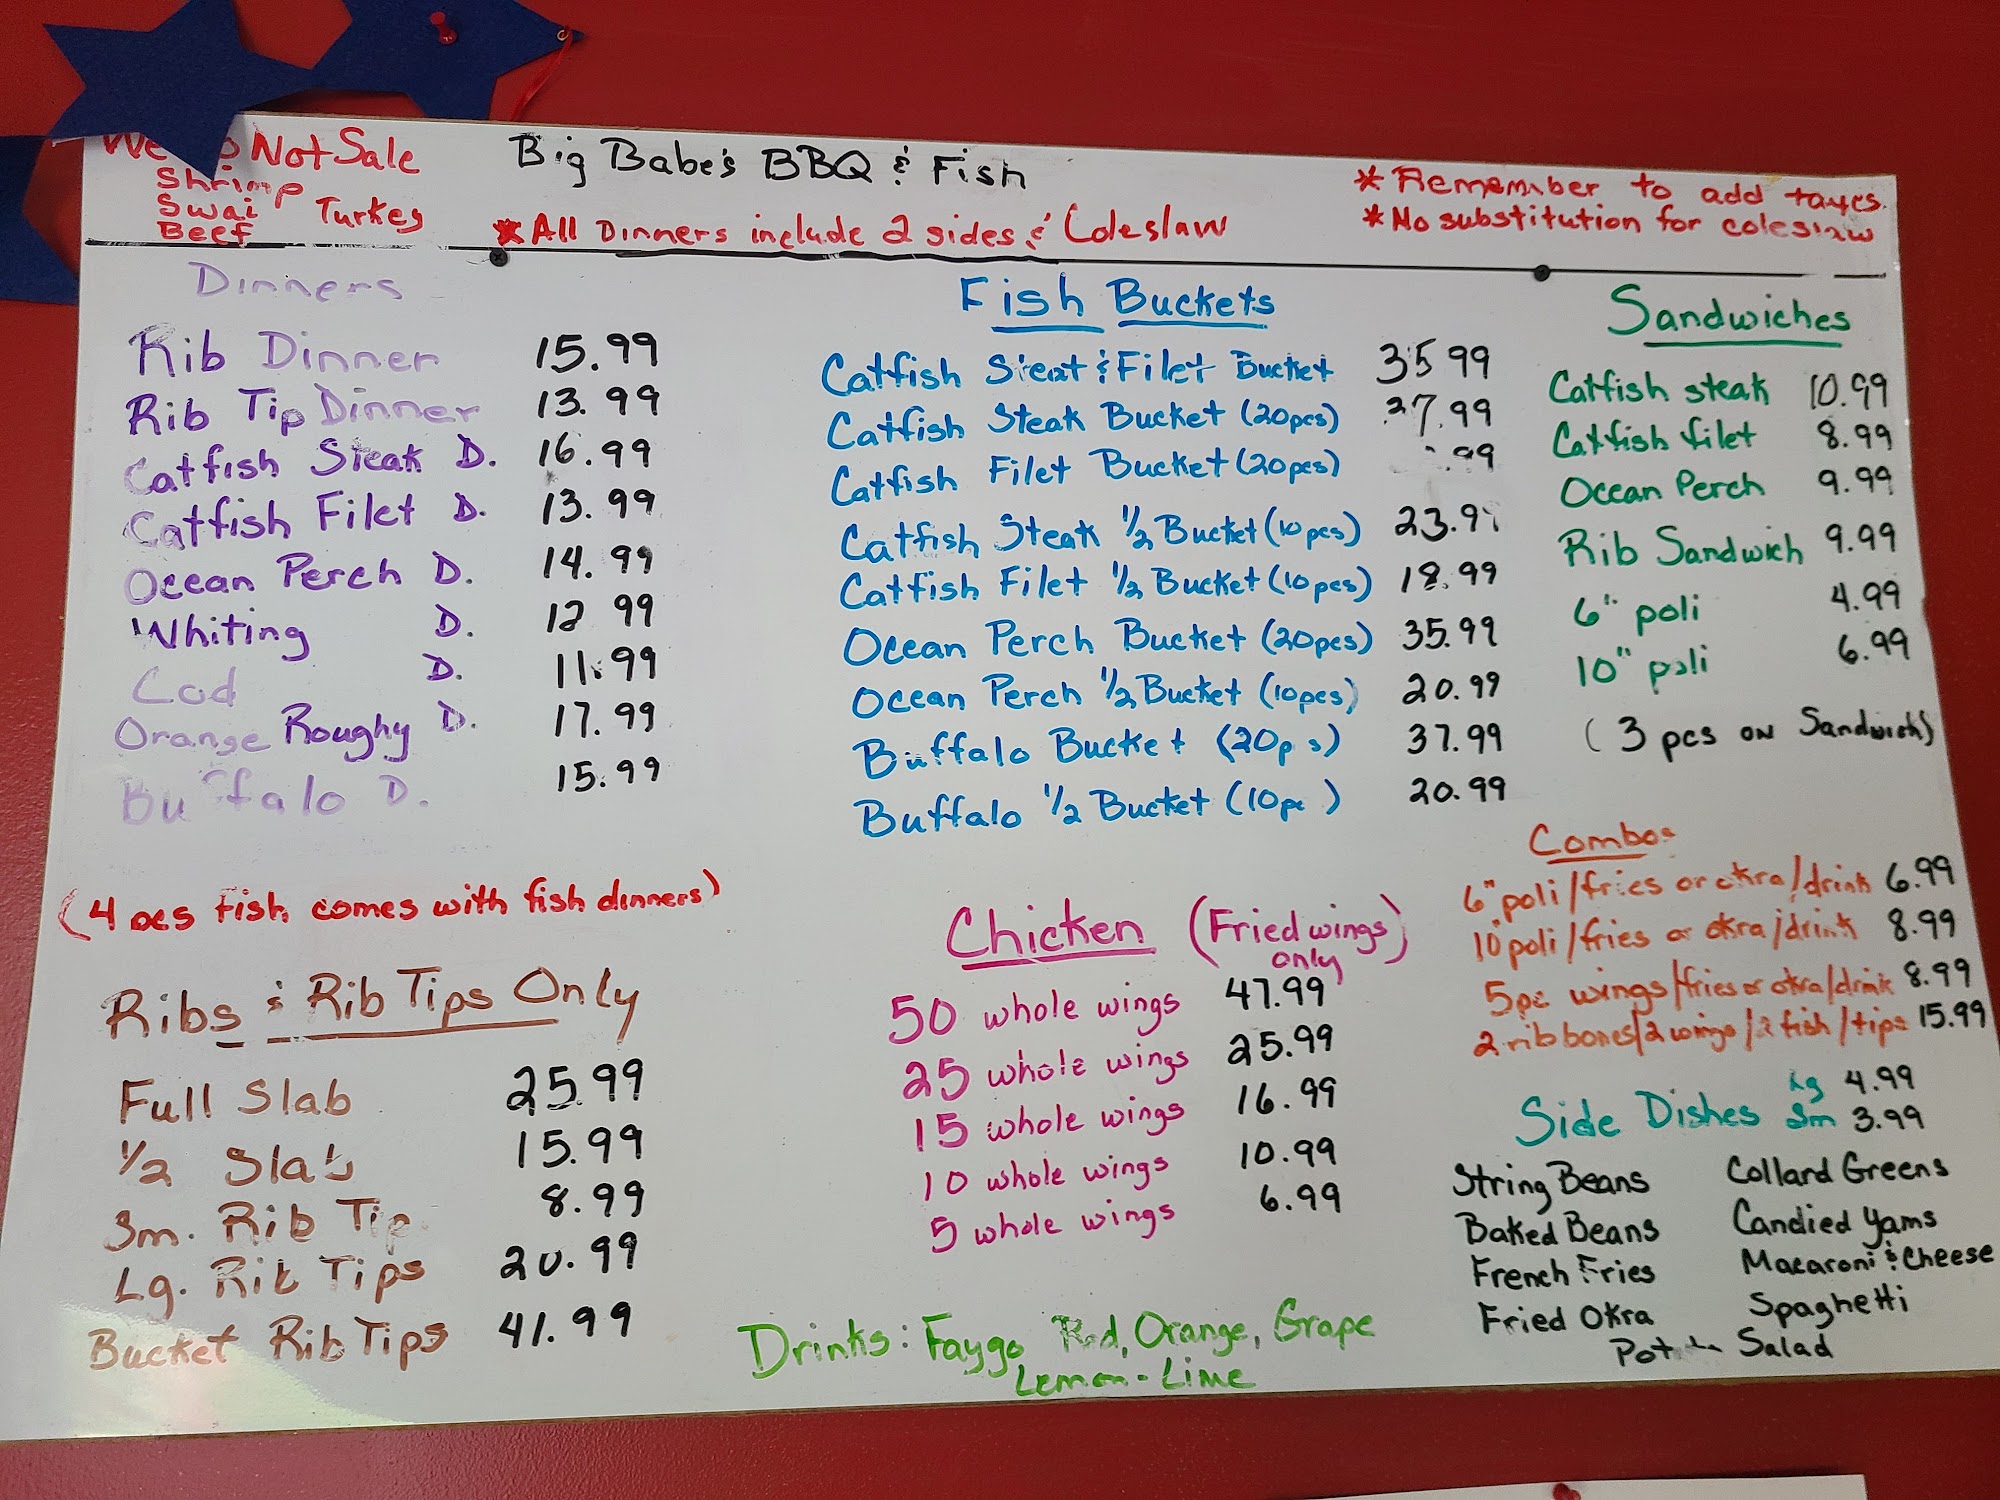 We Do Not Sale
Shrimp
Swai Turkey
Beef
Big Babe's BBQ & Fish
*All Dinners include 2 sides & Coleslaw
*Remember to add taxes.
*No substitution for coleslaw
Dinners
Rib Dinner 15.99
Rib Tip Dinner 13.99
Catfish Steak D. 16.99
Catfish Filet D. 13.99
Ocean Perch D. 14.99
Whiting D. 12 99
Cod D. 11.99
Orange Roughy D. 17.99
Buffalo D. 15.99
(4 pcs fish comes with fish dinners)
Ribs & Rib Tips Only
Full Slab 25.99
1/2 Slab 15.99
Sm. Rib Tip 8.99
Lg. Rib Tips 20.99
Bucket Rib Tips 41.99
Fish Buckets
Catfish Steak & Filet Bucket 35 99
Catfish Steak Bucket (20pcs) 37.99
Catfish Filet Bucket (20pcs) .99
Catfish Steak 1/2 Bucket (10pcs) 23.99
Catfish Filet 1/2 Bucket (10pcs) 18.99
Ocean Perch Bucket (20pcs) 35.99
Ocean Perch 1/2 Bucket (10pcs) 20.99
Buffalo Bucket (20p s) 37.99
Buffalo 1/2 Bucket (10pc ) 20.99
Chicken (Fried wings only)
50 whole wings 47.99
25 whole wings 25.99
15 whole wings 16.99
10 whole wings 10.99
5 whole wings 6.99
Drinks: Faygo Red, Orange, Grape
Lemon-Lime
Sandwiches
Catfish steak 10.99
Catfish filet 8.99
Ocean Perch 9.99
Rib Sandwich 9.99
6" poli 4.99
10" poli 6.99
(3 pcs on Sandwich)
Combos
6" poli/fries or okra/drink 6.99
10" poli/fries or okra/drink 8.99
5pc wings/fries or okra/drink 8.99
2 rib bones/2 wings/2 fish/tips 15.99
Side Dishes Lg 4.99
Sm 3.99
String Beans Collard Greens
Baked Beans Candied Yams
French Fries Macaroni & Cheese
Fried Okra Spaghetti
Potato Salad